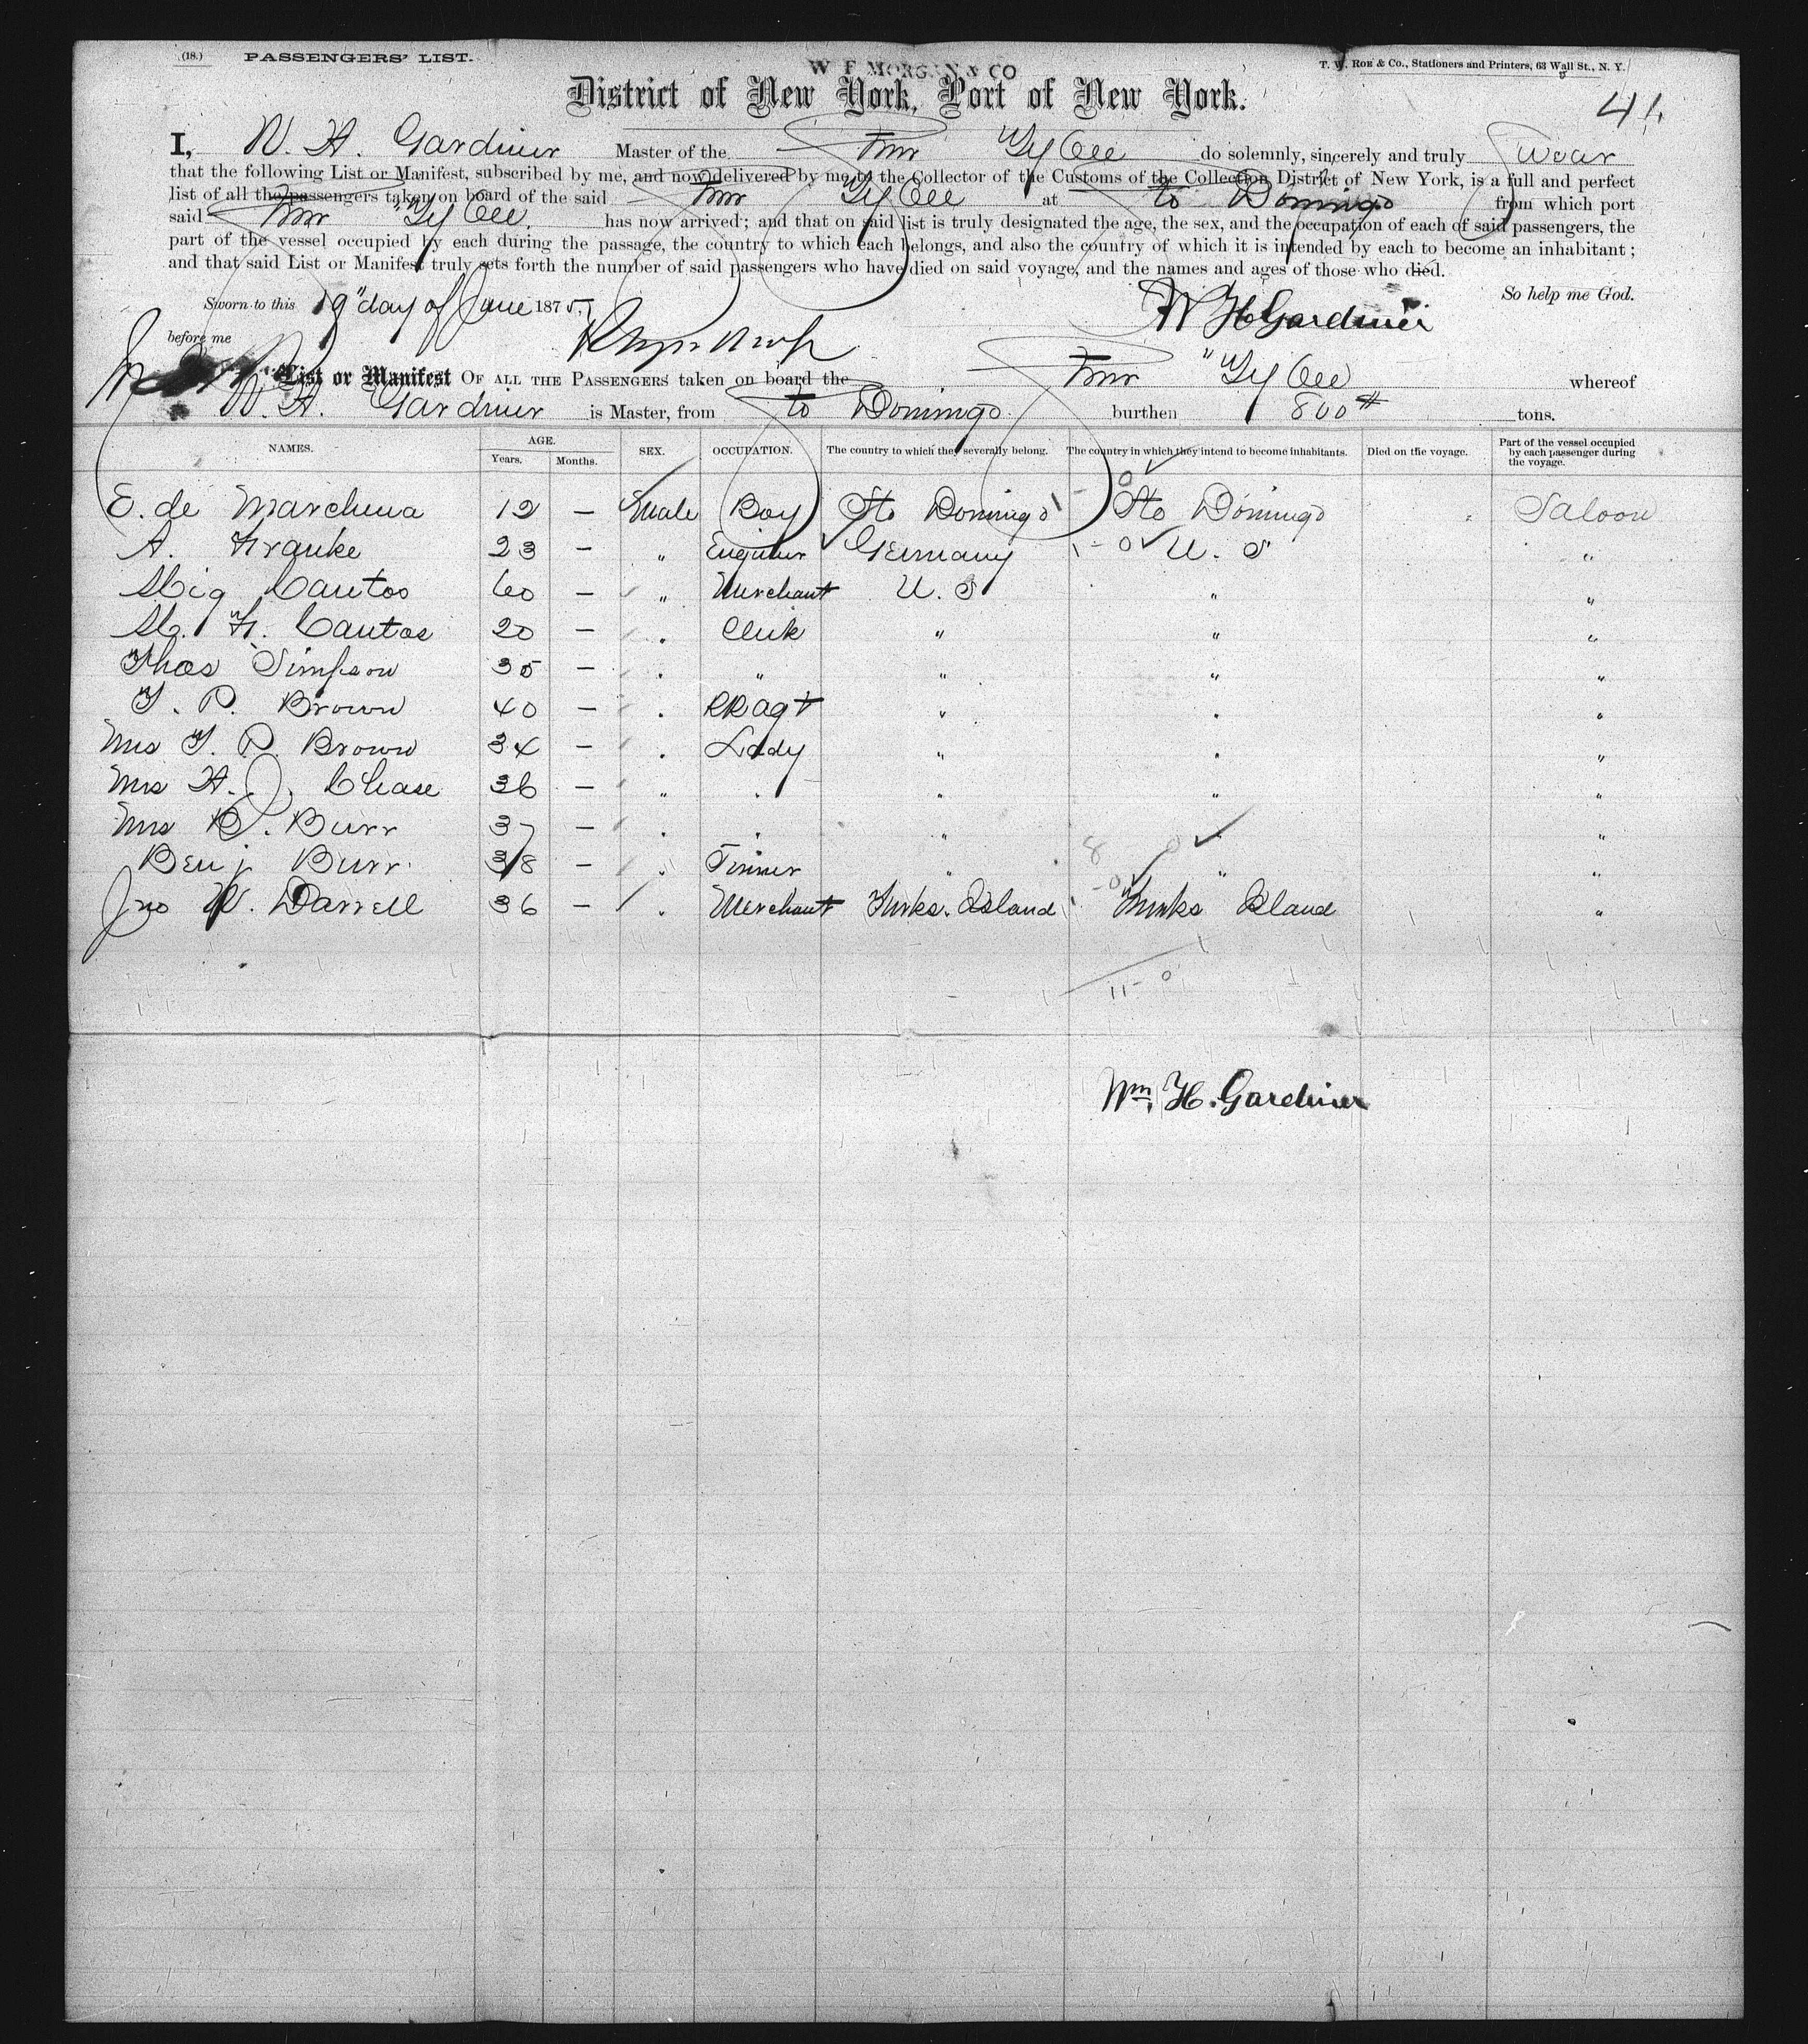 (18.) PASSENGERS' LIST. W F MORGAN & CO T. W. ROE & Co., Stationers and Printers, 63 Wall St., N. Y.
District of New York, Port of New York.
I, W. H. Gardiner Master of the Stmr "TyBee do solemnly, sincerely and truly Swear
that the following List or Manifest, subscribed by me, and now delivered by me to the Collector of the Customs of the Collection District of New York, is a full and perfect
list of all the passengers taken on board of the said Stmr TyBee at Sto Domingo from which port
said Stmr "TyBee. has now arrived; and that on said list is truly designated the age, the sex, and the occupation of each of said passengers, the
part of the vessel occupied by each during the passage, the country to which each belongs, and also the country of which it is intended by each to become an inhabitant;
and that said List or Manifest truly sets forth the number of said passengers who have died on said voyage, and the names and ages of those who died.
So help me God.
Sworn to this 19" day of June 1875. W H Gardiner
before me
List or Manifest OF ALL THE PASSENGERS taken on board the Stmr "TyBee whereof
W. H. Gardiner is Master, from Sto Domingo burthen 800 tons.
NAMES. AGE. Years. Months. SEX. OCCUPATION. The country to which they severally belong. The country in which they intend to become inhabitants. Died on the voyage. Part of the vessel occupied by each passenger during the voyage.
E. de Marchena 12 — Male Boy Sto Domingo 1 - 0 Sto Domingo Saloon
A. Franke 23 — " Engineer Germany 1 - 0 U. S "
Mig Cantos 60 — " Merchant U. S " "
M. F. Cantos 20 — " Clerk " " "
Thos Simpson 35 — " " " " "
T. P. Brown 40 — " RRagt " " "
Mrs T. P. Brown 34 — " Lady " " "
Mrs H. J. Chase 36 — " " " " "
Mrs B. Burr 37 — " " " " "
Benj Burr 38 — " Tinner " 8 0 " "
Jno W. Darrell 36 — " Merchant Turks. Island 1 - 0 Turks Island "
11 - 0
Wm. H. Gardiner